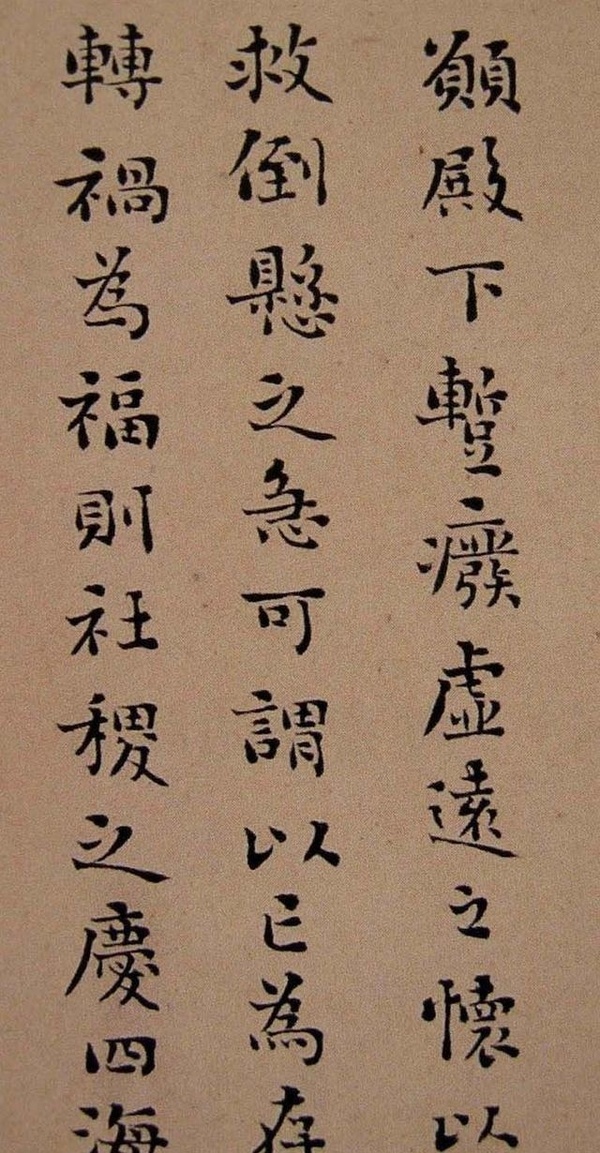 願殿下暫廢虛遠之懷以
救倒懸之急可謂以亡為存
轉禍為福則社稷之慶四海